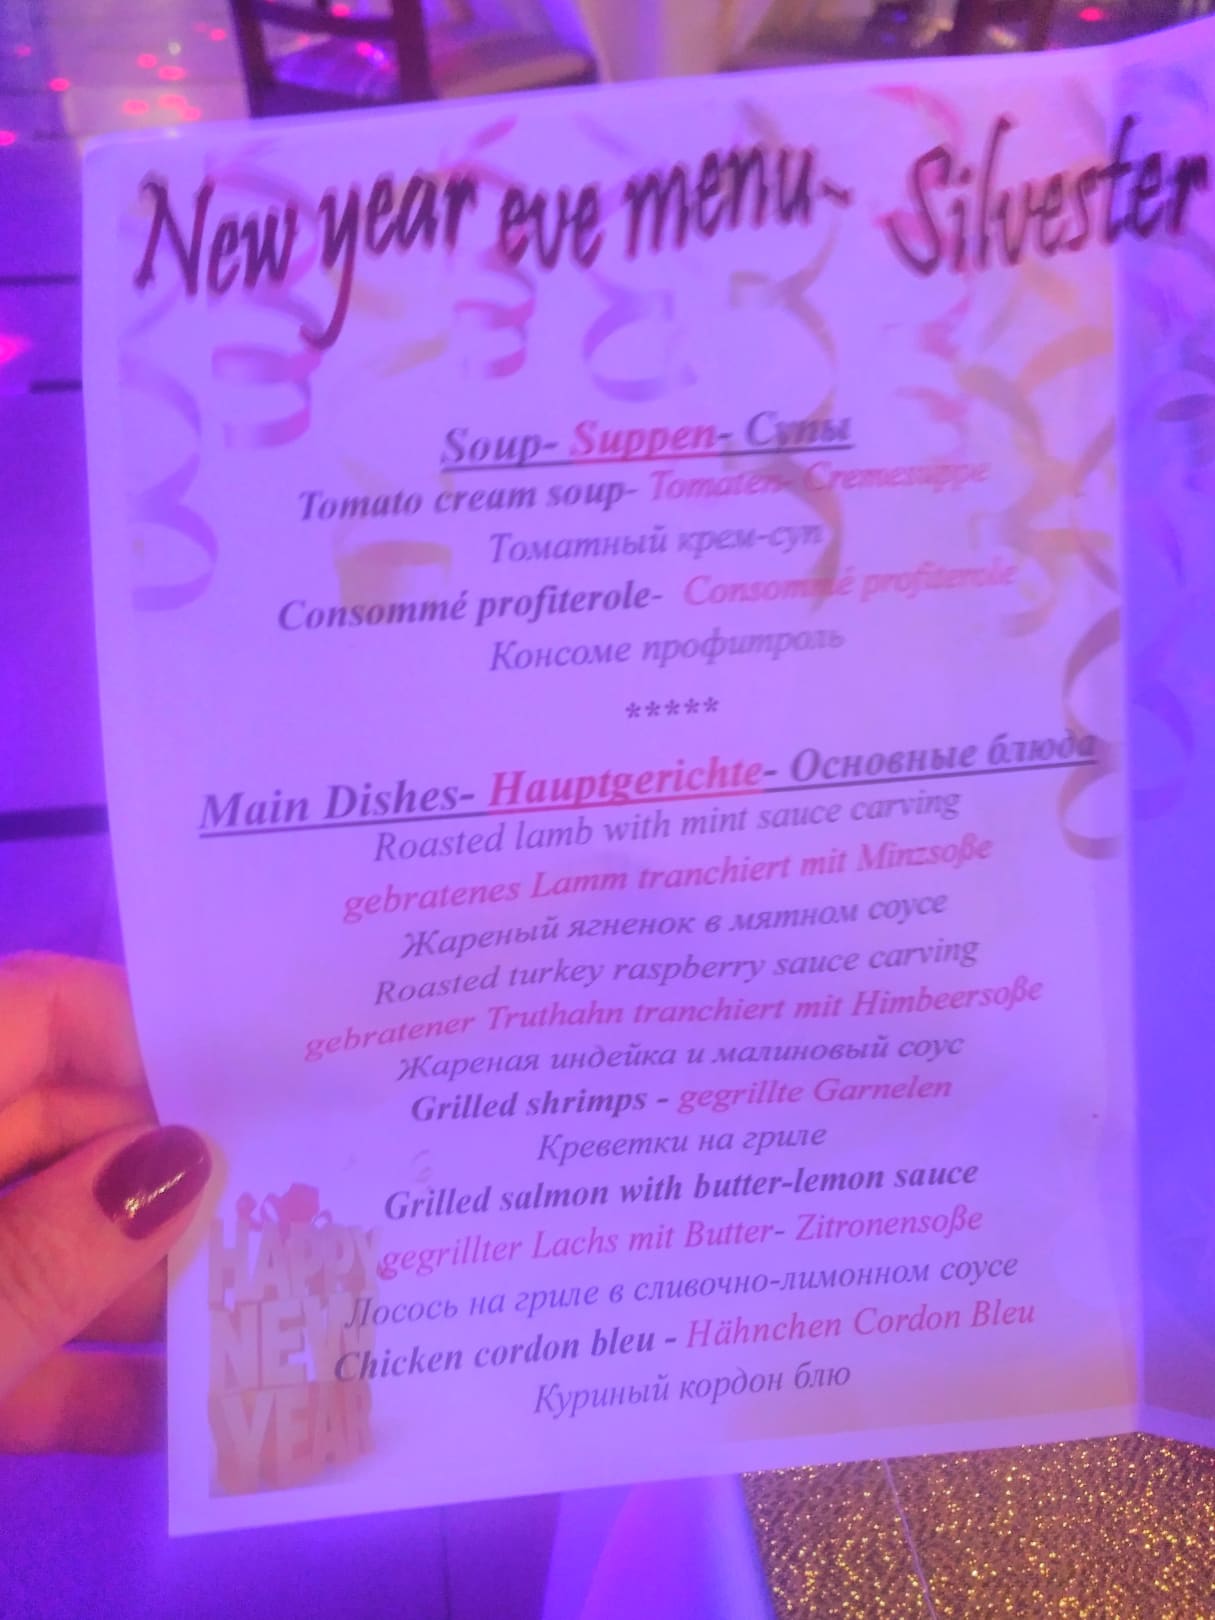 New year eve menu- Silvester
Soup- Suppen- Супы
Tomato cream soup- Tomaten- Cremesuppe
Томатный крем-суп
Consommé profiterole- Consommé profiterole
Консоме профитроль
*****
Main Dishes- Hauptgerichte- Основные блюда
Roasted lamb with mint sauce carving
gebratenes Lamm tranchiert mit Minzsoße
Жареный ягненок в мятном соусе
Roasted turkey raspberry sauce carving
gebratener Truthahn tranchiert mit Himbeersoße
Жареная индейка и малиновый соус
Grilled shrimps - gegrillte Garnelen
Креветки на гриле
Grilled salmon with butter-lemon sauce
gegrillter Lachs mit Butter- Zitronensoße
Лосось на гриле в сливочно-лимонном соусе
Chicken cordon bleu - Hähnchen Cordon Bleu
Куриный кордон блю
HAPPY
NEW
YEAR